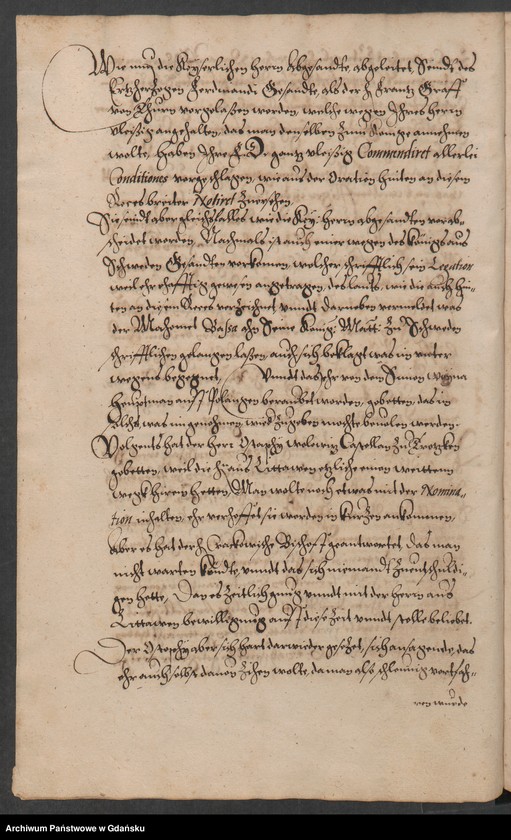 Wie nun die Keyserlichen herrn Abgesandte abgeleitet, Seindt des
Ertzhertzogen Ferdinandi Gesandte, als der h. Frantz Graff
von Thurn vorgelaßen worden, welche wegen Ihres herrn
vleißig angehalten, das man denselben zum Könige annehmen
wolte, haben Ihre F. D. gantz vleißig Commendiret allerlei
Conditiones vorgeschlagen, wie aus der Oration hinten an diesem
Reces breiter Notiret zuersehen.
Sie seindt aber gleichsfalles wie die Key: herrn abgesandten vorab-
scheidet worden, Nachmals ist auch einer wegen des Königs aus
Schweden Gesandten vorkomen, welcher schrifftlich sein Legation
weil ehr hefftig gewesen angetragen, des lauts, wie die auch hin-
ten an diesem Reces verzeichnet vnndt darneben vermeldet was
der Machomet Bassa ahn Seine Königl: Matt: zu Schweden
schrifftlichen gelangen laßen, auch sich beklagt was im vnter
wegens begegnet, Vnndt das ehr von den Simon
heuptman auff beraubet worden, gebetten, das im
solchs was im genohmen wiederzugeben mochte beuolen werden.
Volgents hat der herr Ostaphy Wolowicz Castellan zu Trotzken
gebetten, weil die h. aus Littawen etzliche einen weittern
wegk hieren hetten, Man wolte noch etwas mit der Nomina-
tion inhalten, ehr verhoffet sie worden in kurtzen ankommen,
aber es hat der h. Crackowische Bischoff geantwortet, das man
nicht warten köndte, vnndt das sich niemandt zuentschuldi-
gen hette, Dan es zeitlich gnug vnndt mit der herrn aus
Littawen bewilligung auff diese zeit vnndt stelle beliebet.
Der Ostaphy aber sich hart darwieder gesetzt, sich ansagende, das
ehr auch selbst dauon ziehen wolte, da man also schleunig vortfah-
ren wurde
Archiwum Państwowe w Gdańsku